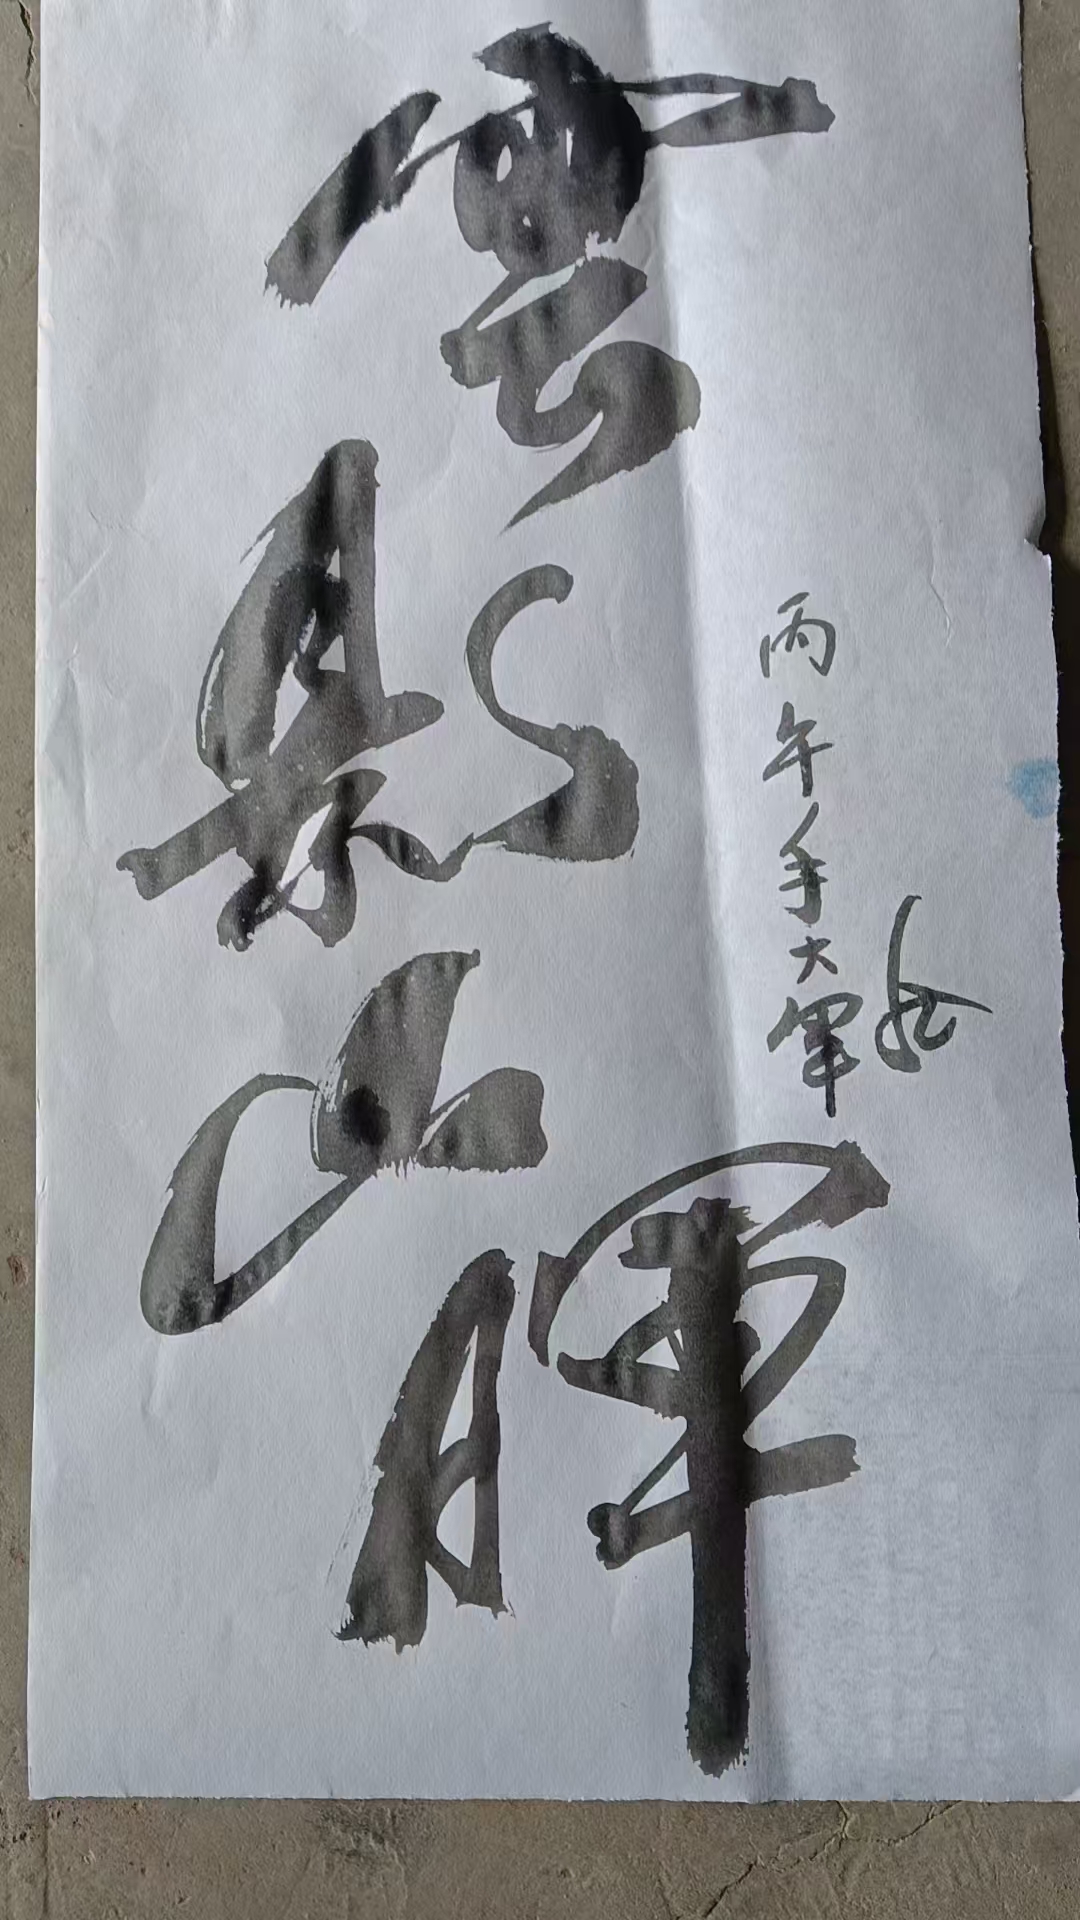 雲影山暉
丙午年大軍书